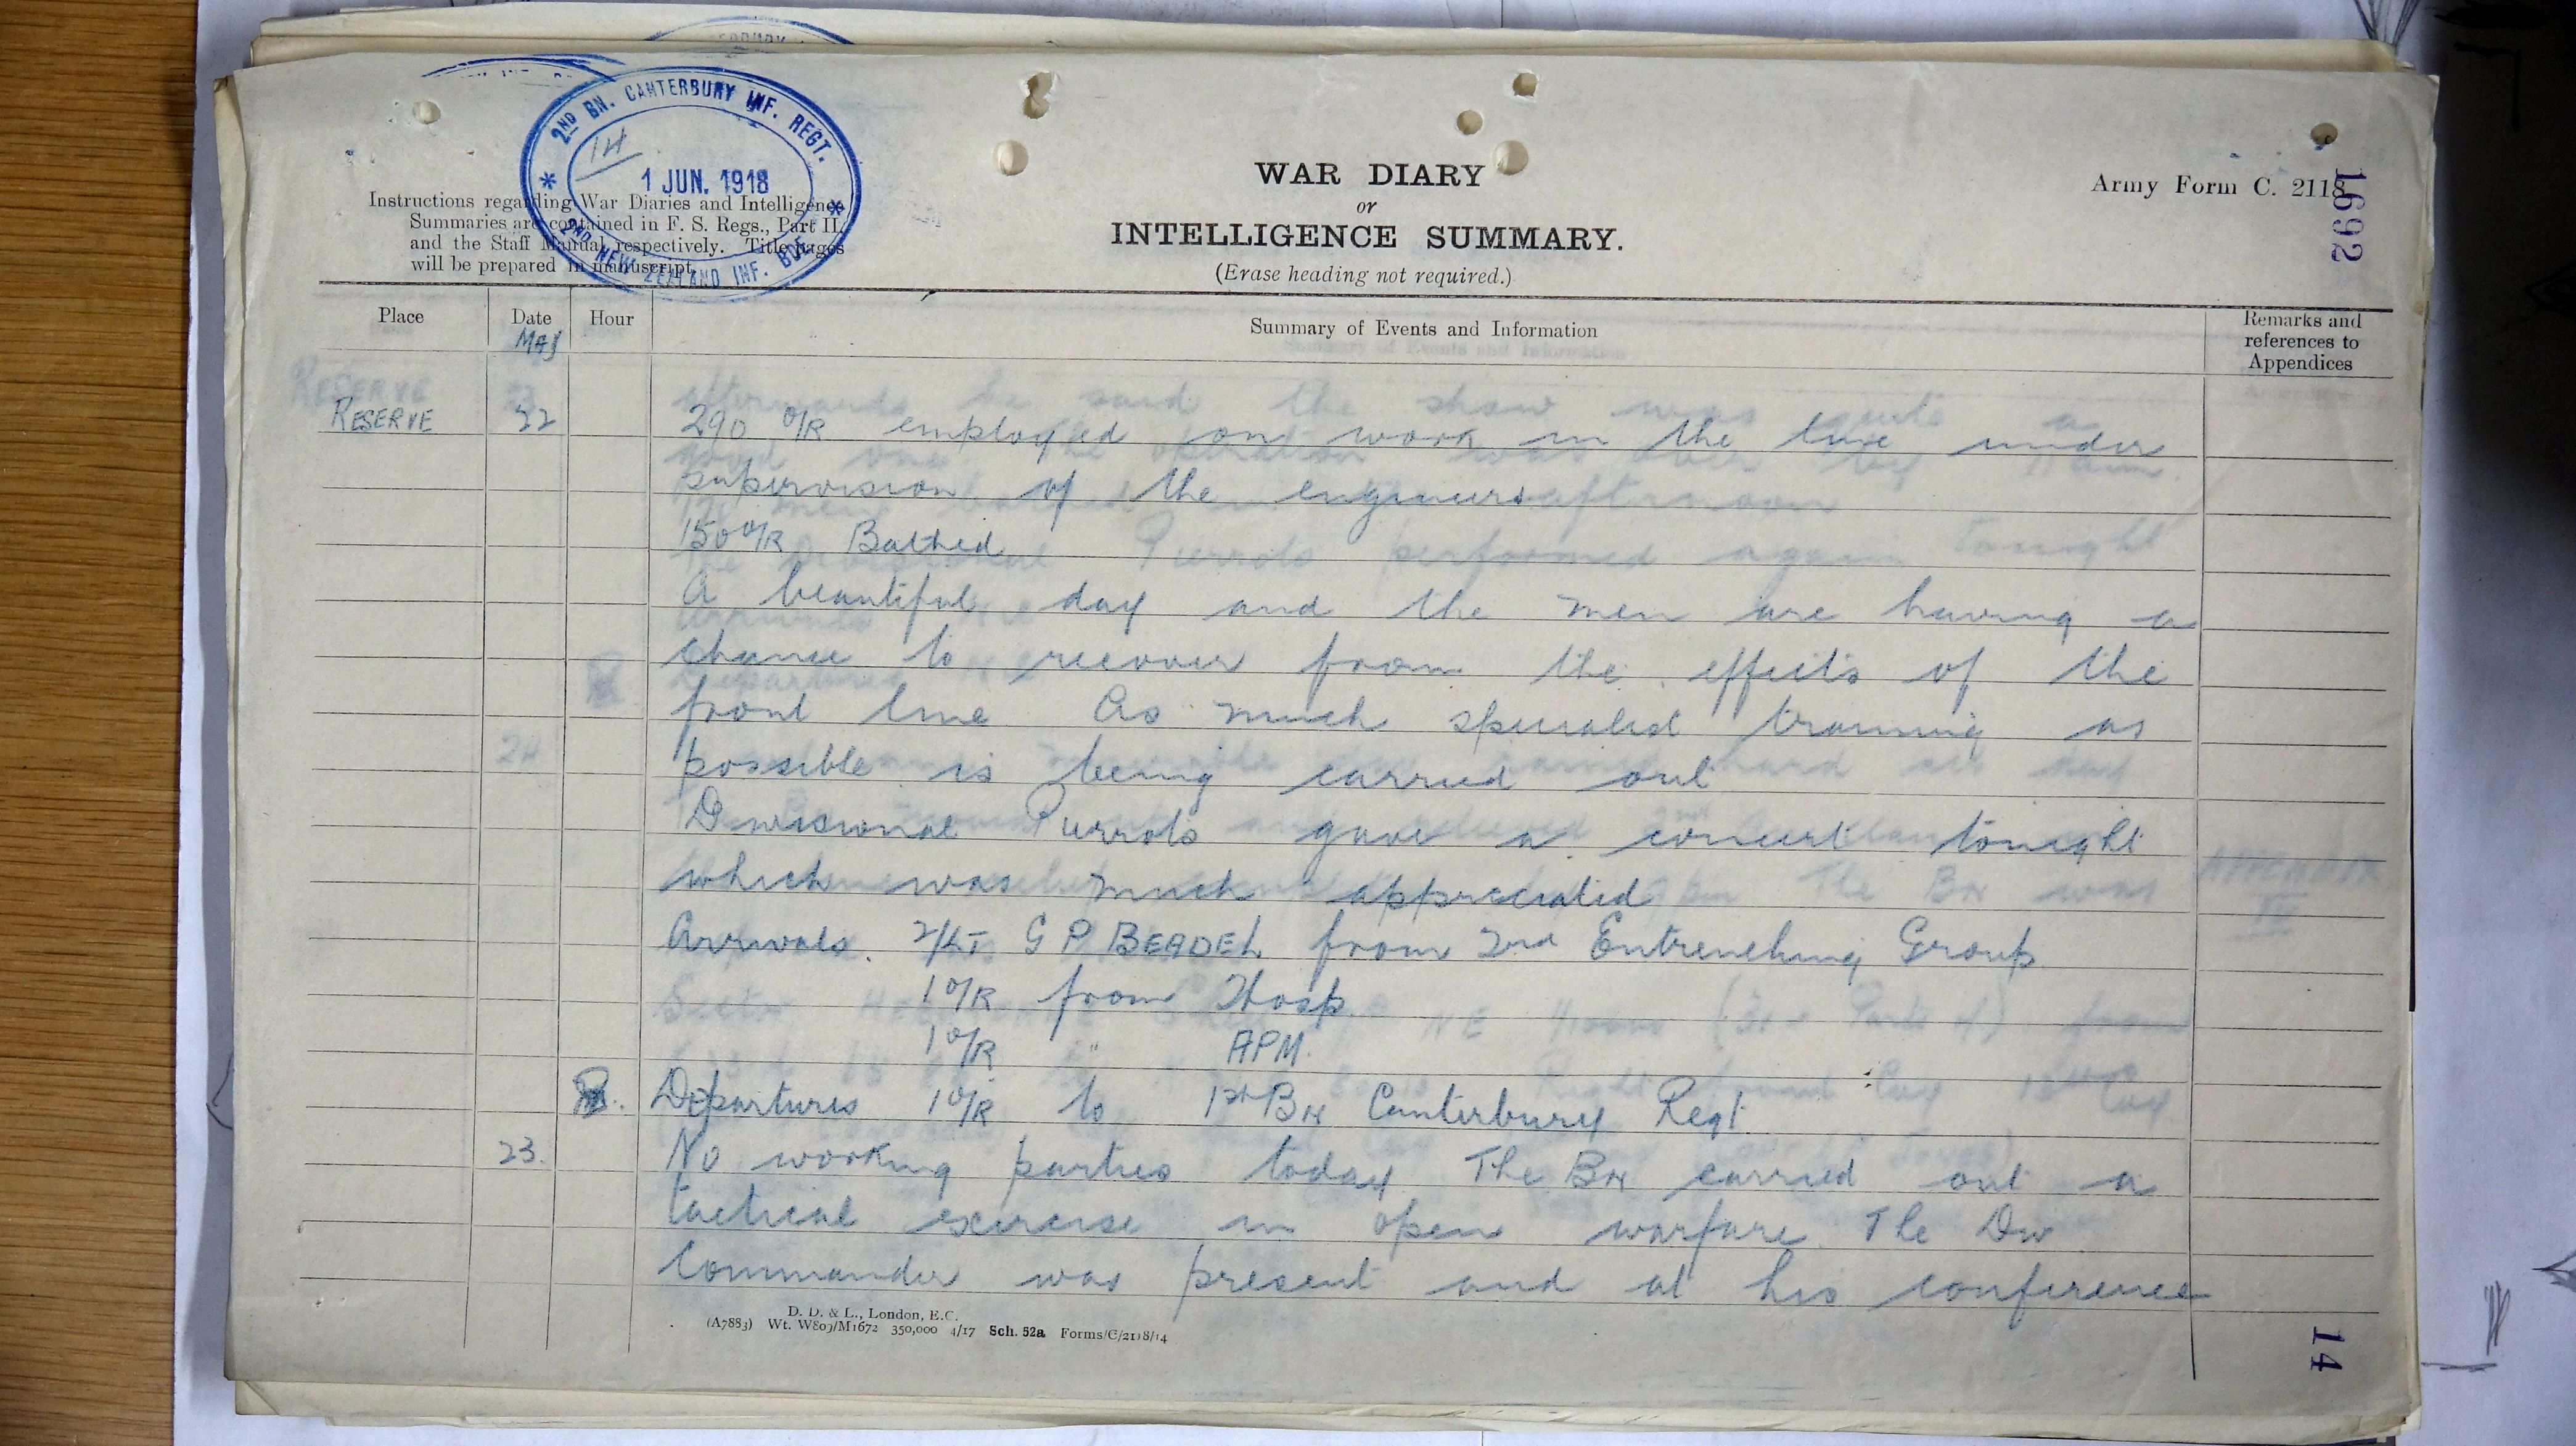 2ND BN. CANTERBURY INF. REGT.
14
1 JUN. 1918
2ND NEW ZEALAND INF. BDE.
Instructions regarding War Diaries and Intelligence
Summaries are contained in F. S. Regs., Part II.
and the Staff Manual respectively. Title pages
will be prepared in manuscript.
WAR DIARY
or
INTELLIGENCE SUMMARY.
(Erase heading not required.)
Army Form C. 2118
1692
Place Date Hour Summary of Events and Information Remarks and references to Appendices
MAY
RESERVE 22 290 O/R employed on work in the line under
supervision of the engineers
150 O/R Bathed
A beautiful day and the men are having a
chance to recover from the effects of the
front line As much specialist training as
possible is being carried out
Divisional Pierrots gave a concert tonight
which was much appreciated
Arrivals. 2/LT G P BEADEL from 2nd Entrenching Group
1 O/R from Hosp.
1 O/R " APM.
Departures 1 O/R to 1st BN Canterbury Regt.
23. No working parties today The BN carried out a
tactical exercise in open warfare. The Div
Commander was present and at his conference
D. D. & L., London, E.C.
(A7883) Wt. W809/M1672 350,000 4/17 Sch. 52a Forms/C/2118/14
14